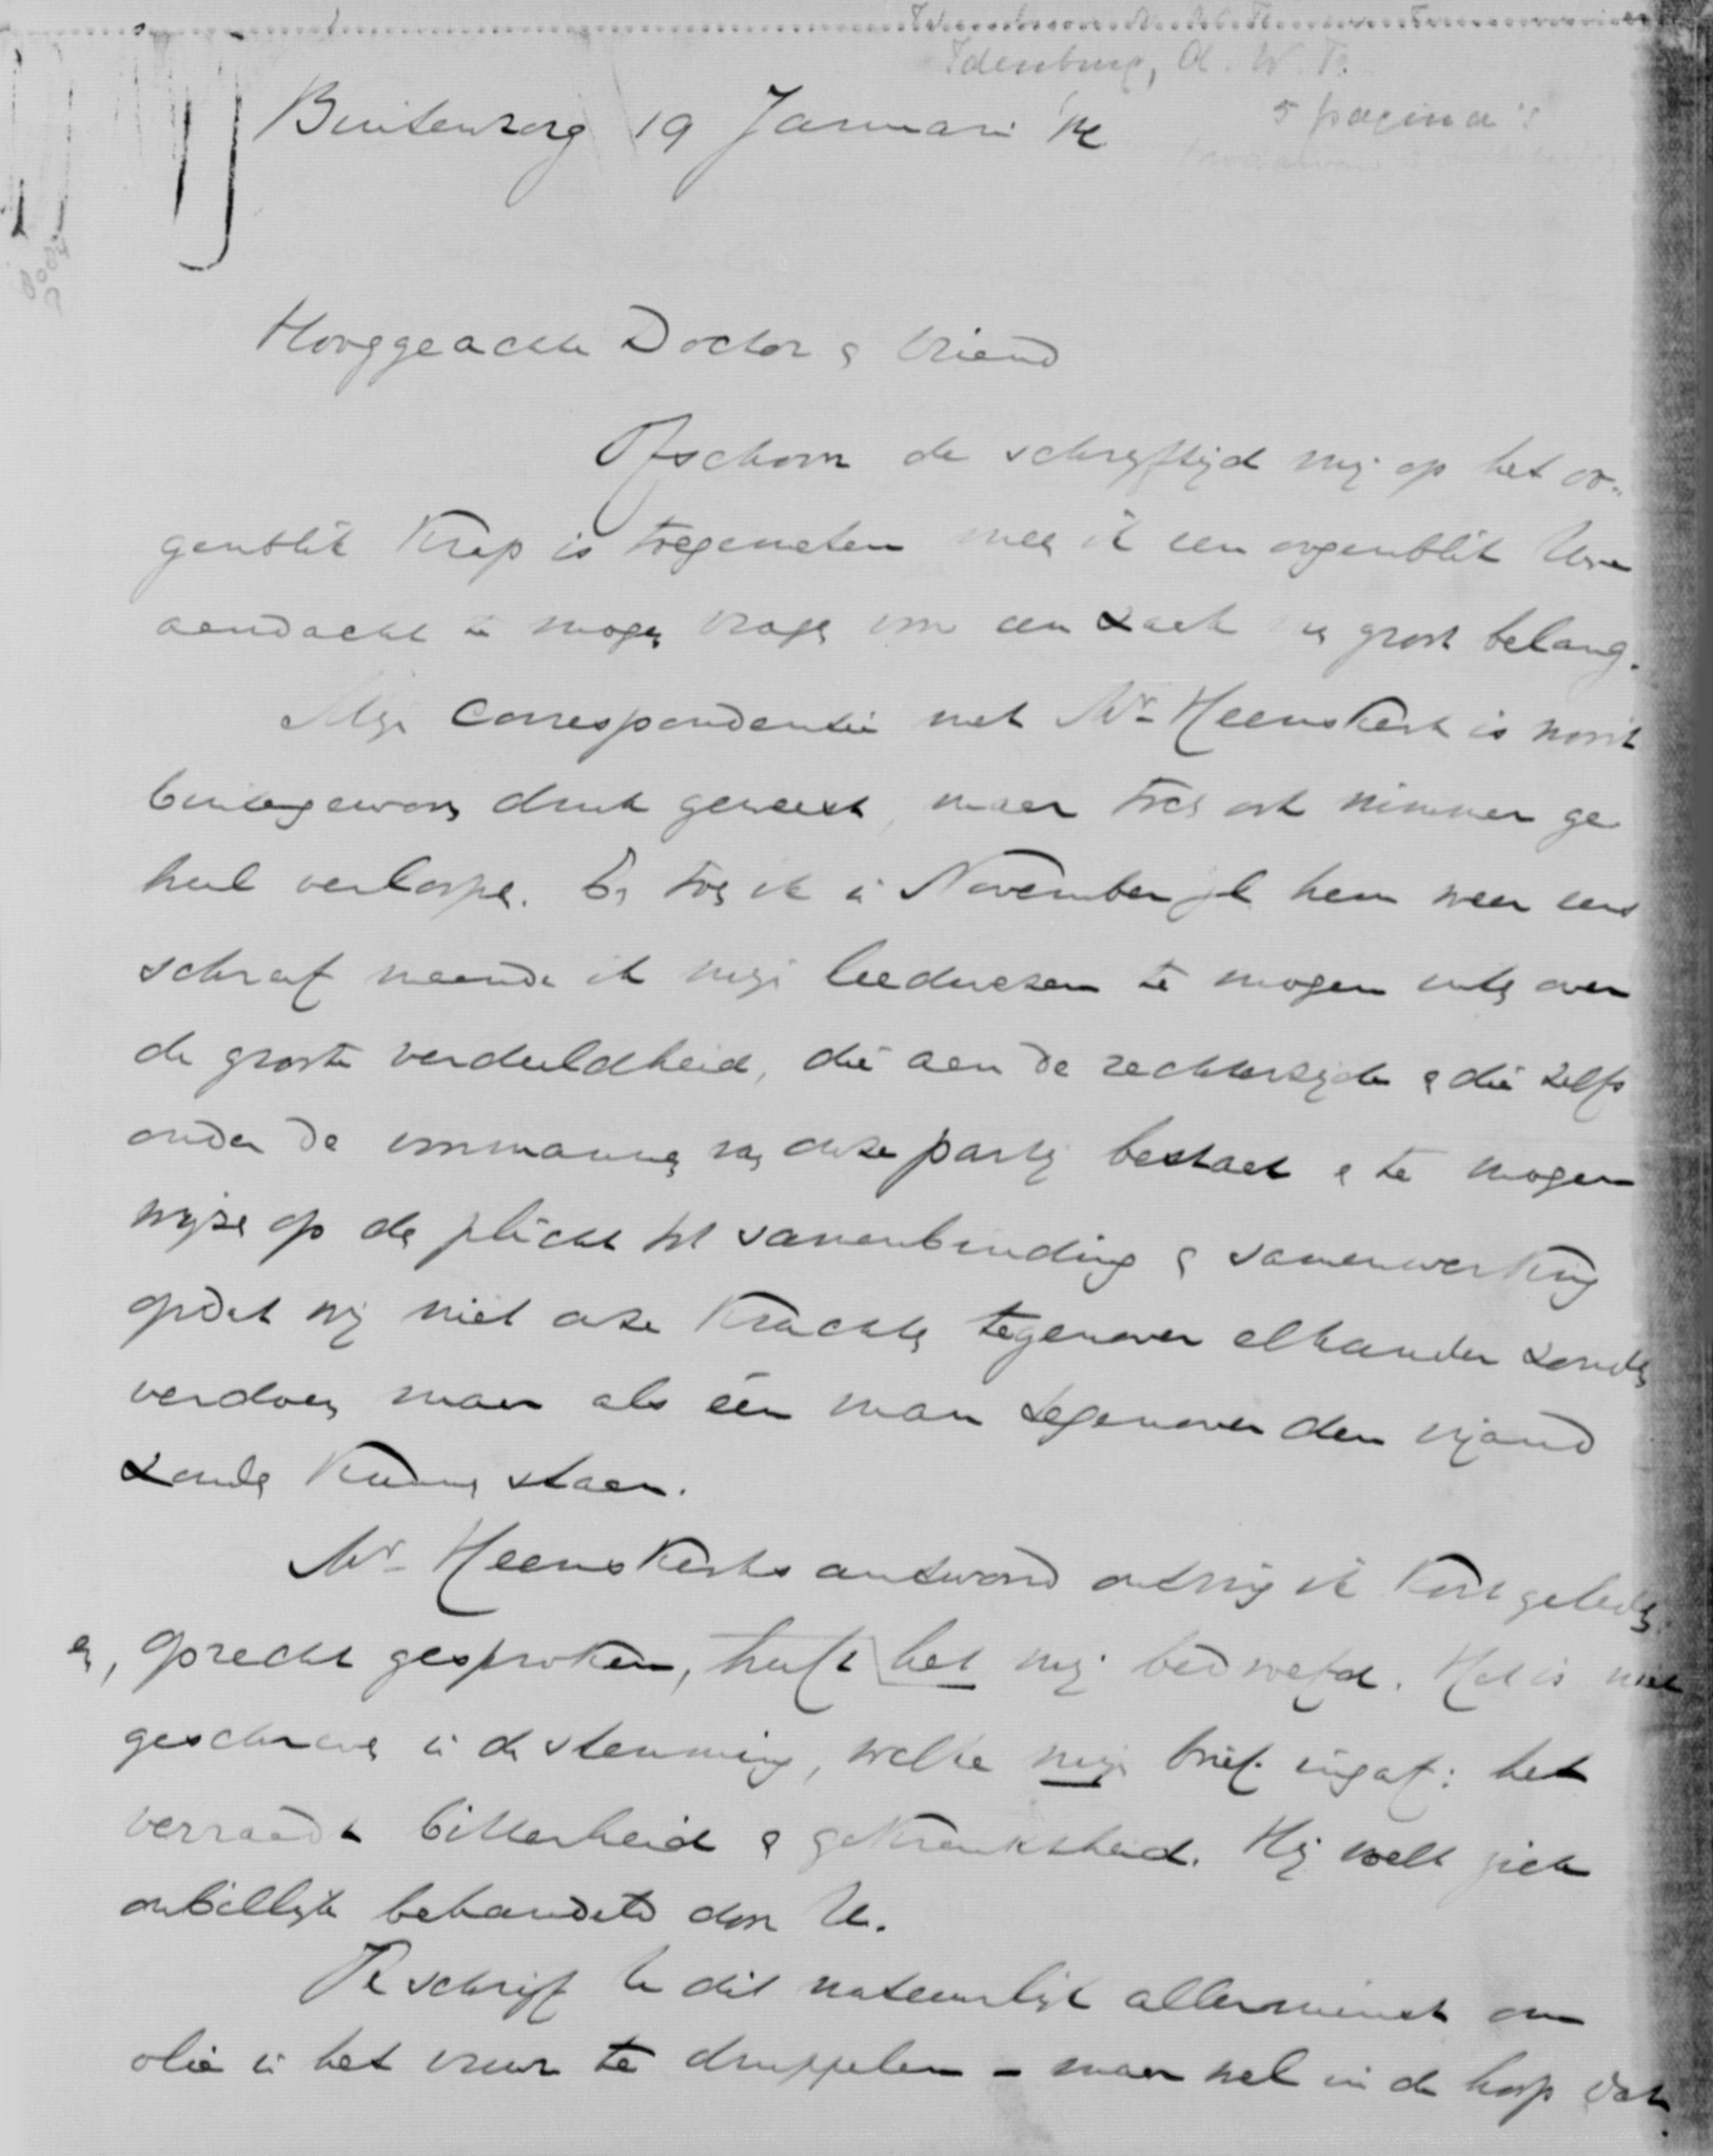 Idenburg, A. W. F.
5 pagina's
Buitenzorg 19 Januari '12
Hooggeachte Doctor & Vriend
Ofschoon de schrijftijd mij op het oo-
genblik krap is toegemeten meen ik een oogenblik Uwe
aandacht te mogen vragen voor een zaak van groot belang.
Mijn correspondentie met Mr Heemskerk is nooit
buitengewoon druk geweest, maar toch ook nimmer ge
heel verloopen. En toen ik in November jl hem weer eens
schreef meende ik mijn leedwezen te mogen uiten over
de groote verdeeldheid, die aan de rechterzijde & die zelfs
onder de voormannen van onze partij bestaat & te mogen
wijzen op den plicht tot samenbinding & samenwerking
opdat wij niet onze krachten tegenover elkander zouden
verdoen maar als één man tegenover den vijand
zouden kunnen staan.
Mr Heemskerks antwoord ontving ik kort geleden
en, oprecht gesproken, heeft het mij bedroefd. Het is niet
geschreven in de stemming, welke mijn brief ingaf: het
verraadt bitterheid & gekrenktheid. Hij voelt zich
onbillijk behandeld door U.
Ik schrijf U dit natuurlijk allerminst om
olie in het vuur te druppelen - maar wel in de hoop dat